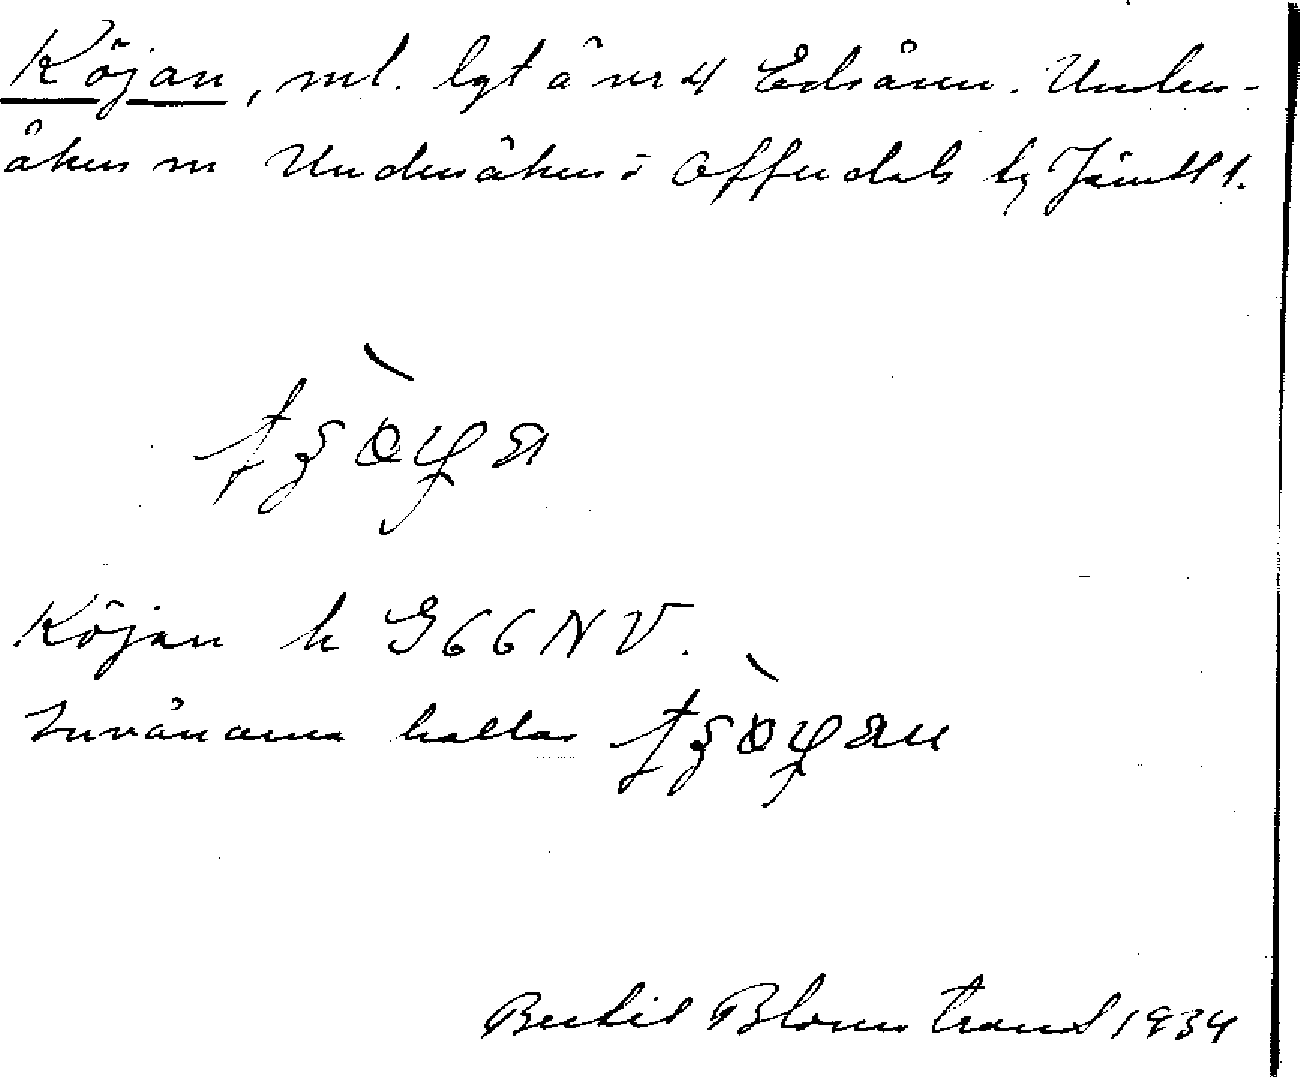 Köjan, ml. lgt å nr 4 Edsåsen. Under-
åkers sn Undersåkers o Offerdals tg Jämtl l.
Köjan k G 66 N V.
Invånarna kallas
Bertil Blomstrand 1934